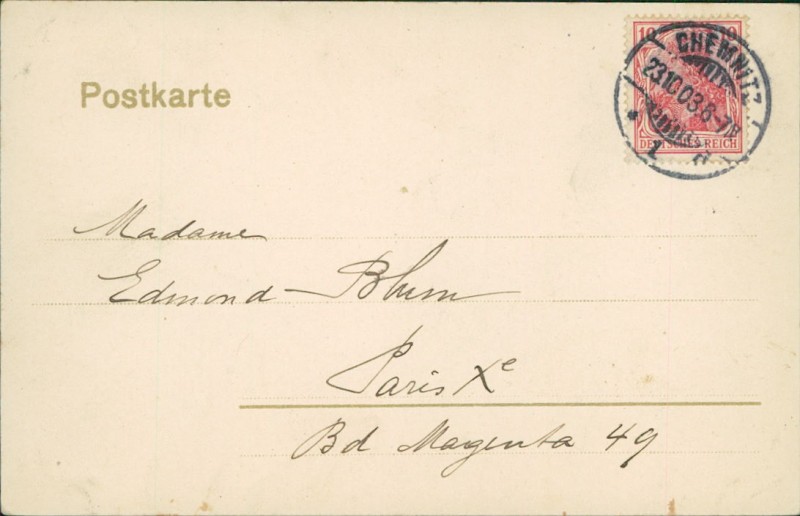 10 10
CHEMNITZ
23.10.03.6-7N
1 d
DEUTSCHES REICH
Postkarte
Madame
Edmond Blum
Paris Xe
Bd Magenta 49